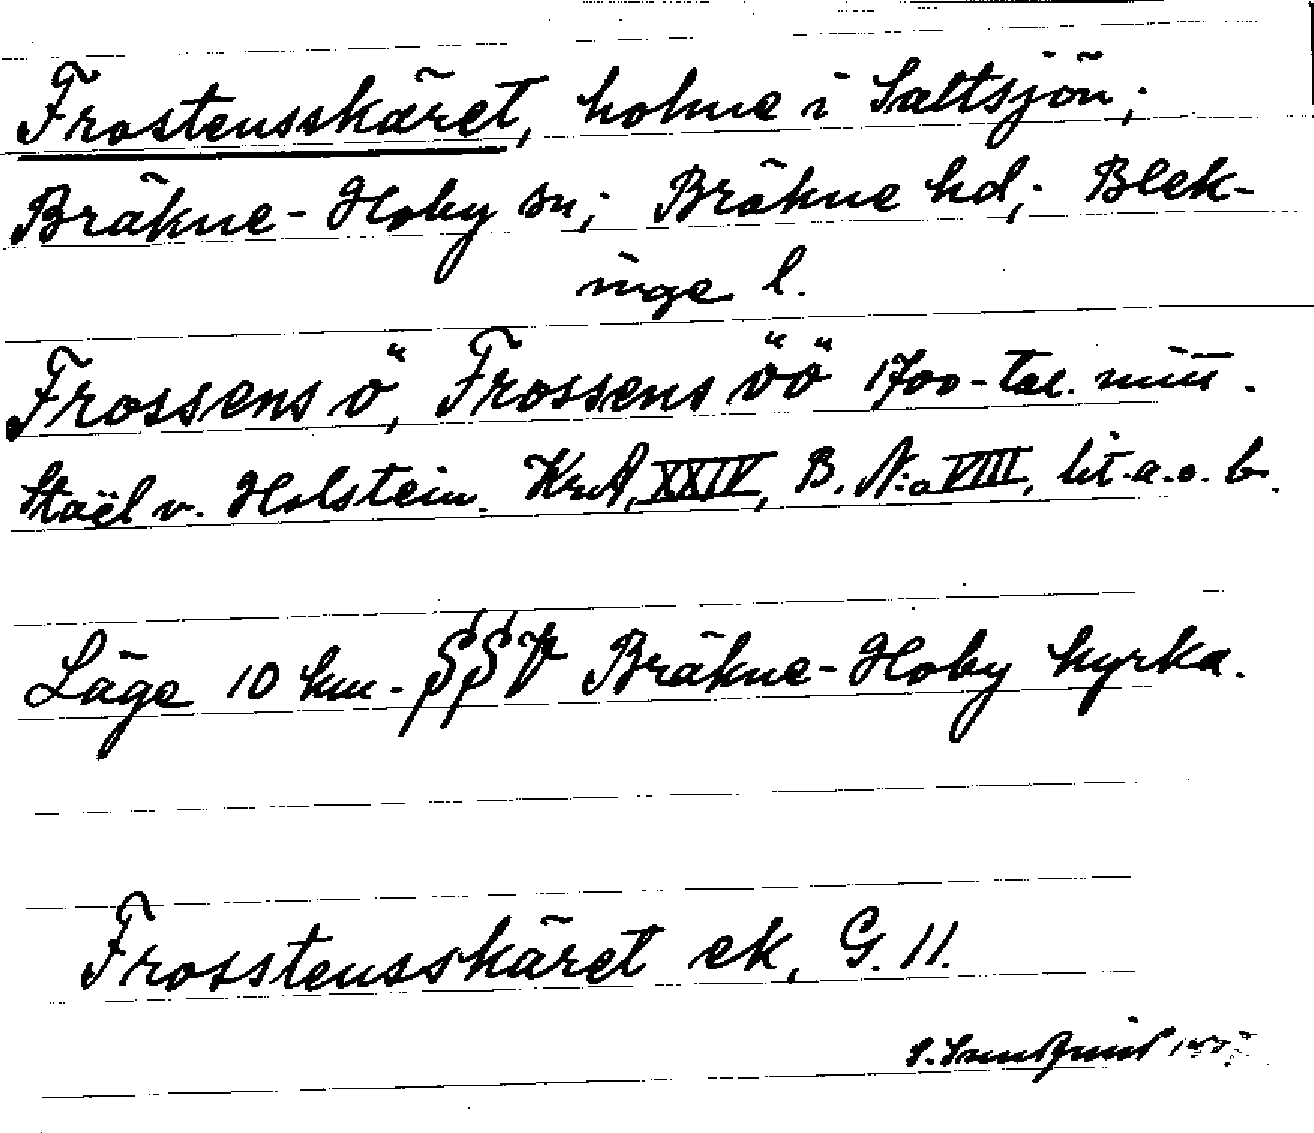 Frostensskäret, holme i Saltsjön;
Bräkne-Hoby sn; Bräkne hd; Blek-
inge l.
Frossens ö, Frossens öö 1700-tal. mitt.
Staël v. Holstein. KrA, XXIV, B. N:o VIII, lit. a. o. b.
Läge 10 km. SSV Bräkne-Hoby kyrka.
Frosstensskäret ek, G. 11.